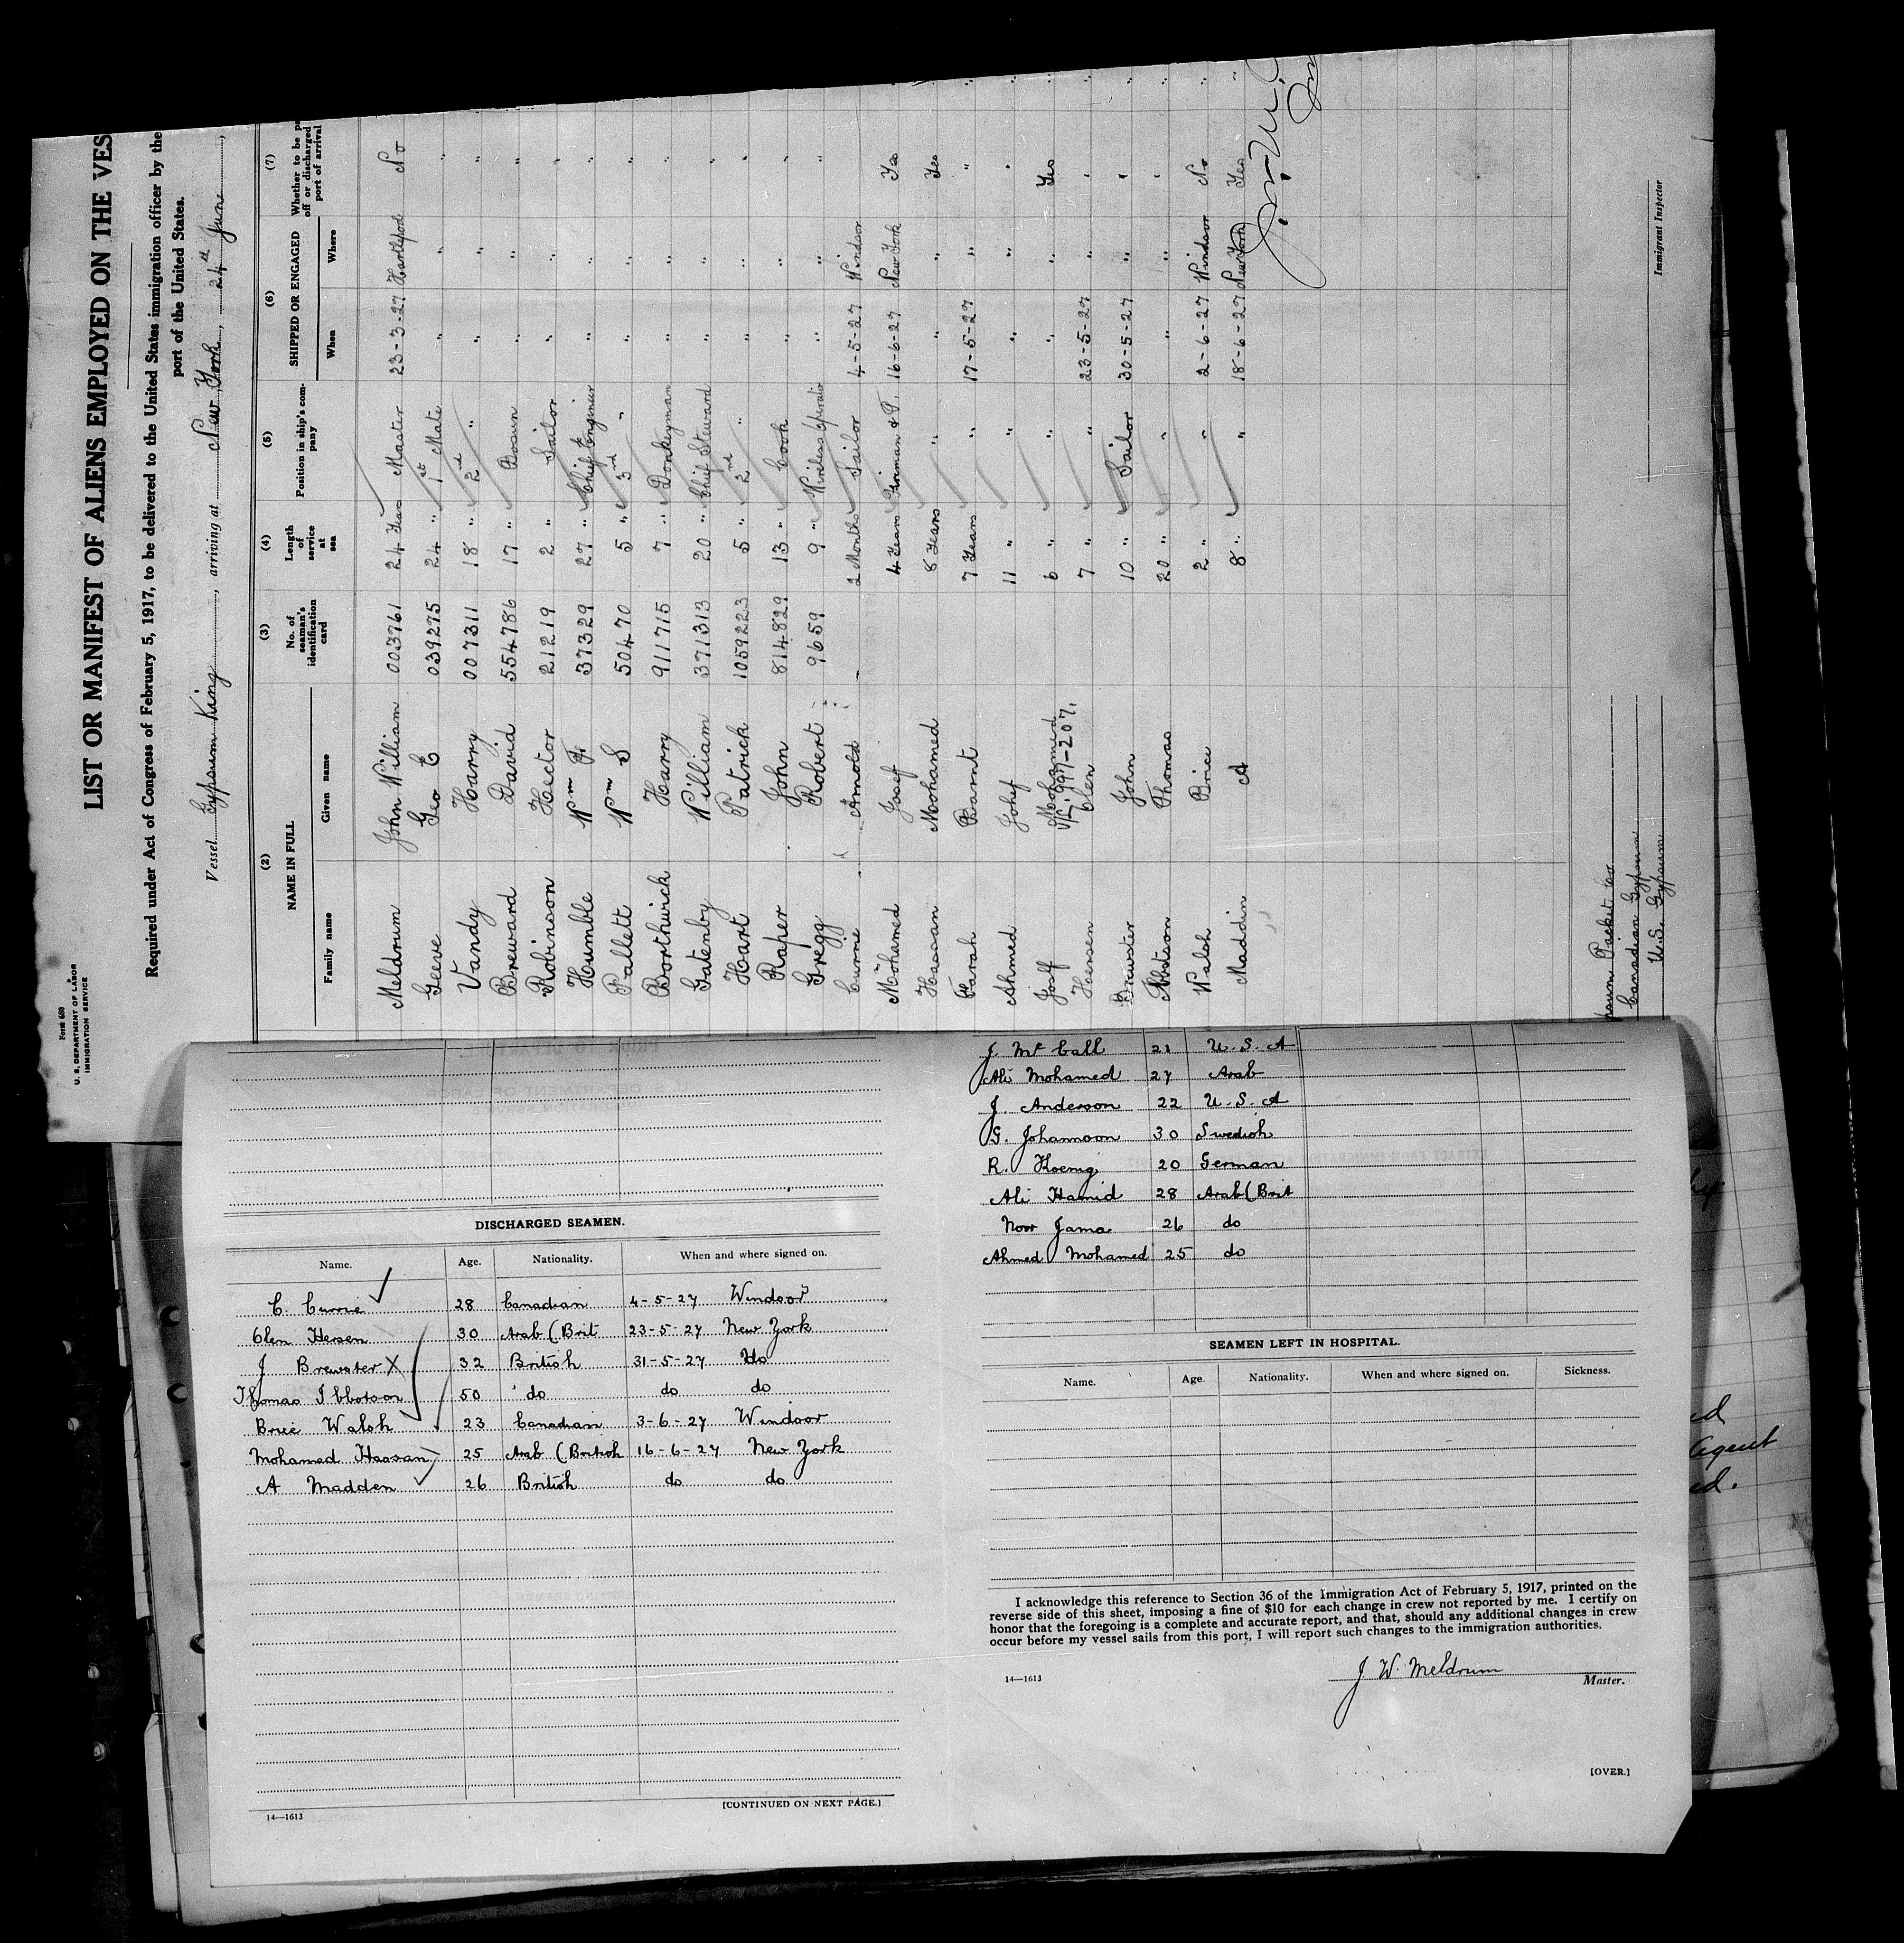 Form 680
U. S. DEPARTMENT OF LABOR
IMMIGRATION SERVICE
LIST OR MANIFEST OF ALIENS EMPLOYED ON THE VES
Required under Act of Congress of February 5, 1917, to be delivered to the United States immigration officer by the
port of the United States.
Vessel Gypsum King, arriving at New York, 24th June,
(2) (3) (4) (5) (6) (7)
NAME IN FULL No. of seaman's identification card Length of service at sea Position in ship's company SHIPPED OR ENGAGED Whether to be off or discharged port of arrival
Family name Given name When Where
Meldrum John William 003761 24 Years Master 23-3-27 Hartlepool No
Geeve Geo E 039275 24 " 1st Mate " " "
Vandy Harry 007311 18 " 2nd " " " "
Breward David 554786 17 " Bosun " " "
Robinson Hector 21219 2 " Sailor " " "
Humble Wm 37329 27 " Chief Engineer " " "
Pallett Wm S 50470 5 " 3rd " " " "
Borthwick Harry 911715 7 " Donkeyman " " "
Gatenby William 371313 20 " Chief Steward " " "
Hart Patrick 1059223 5 " 2nd " " " "
Raper John 814829 13 " Cook " " "
Gregg Robert 9659 9 " Wireless Operator " " "
Currie Arnold - 2 Months Sailor 4-5-27 Windsor
Mohamed Josef 4 Years Fireman & T. 16-6-27 New York Yes
Hassan Mohamed 8 Years " " " Yes
Farah Barnt 7 Years " 17-5-27 " "
Ahmed Johif 11 " " " " "
Josff Mohamed 6 " " " " Yes
Hersen Olen 7 " " 23-5-27 " "
Brewster John 10 " Sailor 30-5-27 " "
Ibbotson Thomas 20 " " " " "
Walsh Brice 2 " " 2-6-27 Windsor No
Maddin A 8 " " 18-6-27 New York Yes
Immigrant Inspector
Packet Co
Canadian Gypsum
U.S. Gypsum
DISCHARGED SEAMEN.
Name. Age. Nationality. When and where signed on.
C. Currie 28 Canadian 4-5-27 Windsor
Olen Hersen 30 Arab (Brit 23-5-27 New York
J Brewster X 32 British 31-5-27 do
Thomas Ibbotson 50 do do do
Brice Walsh 23 Canadian 3-6-27 Windsor
Mohamed Hassan 25 Arab (British 16-6-27 New York
A Madden 26 British do do
14—1613
[CONTINUED ON NEXT PAGE.]
J. McCall 21 U. S. A
Ali Mohamed 27 Arab
J. Anderson 22 U. S. A
G. Johannson 30 Swedish
R. Koenig 20 German
Ali Hamid 28 Arab (Brit
Noor Jama 26 do
Ahmed Mohamed 25 do
SEAMEN LEFT IN HOSPITAL.
Name. Age. Nationality. When and where signed on. Sickness.
I acknowledge this reference to Section 36 of the Immigration Act of February 5, 1917, printed on the
reverse side of this sheet, imposing a fine of $10 for each change in crew not reported by me. I certify on
honor that the foregoing is a complete and accurate report, and that, should any additional changes in crew
occur before my vessel sails from this port, I will report such changes to the immigration authorities.
J W. Meldrum
14—1613 Master.
[OVER.]
Agent